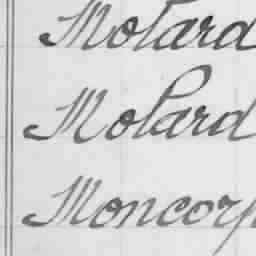 Molard
Molard
Moncorp